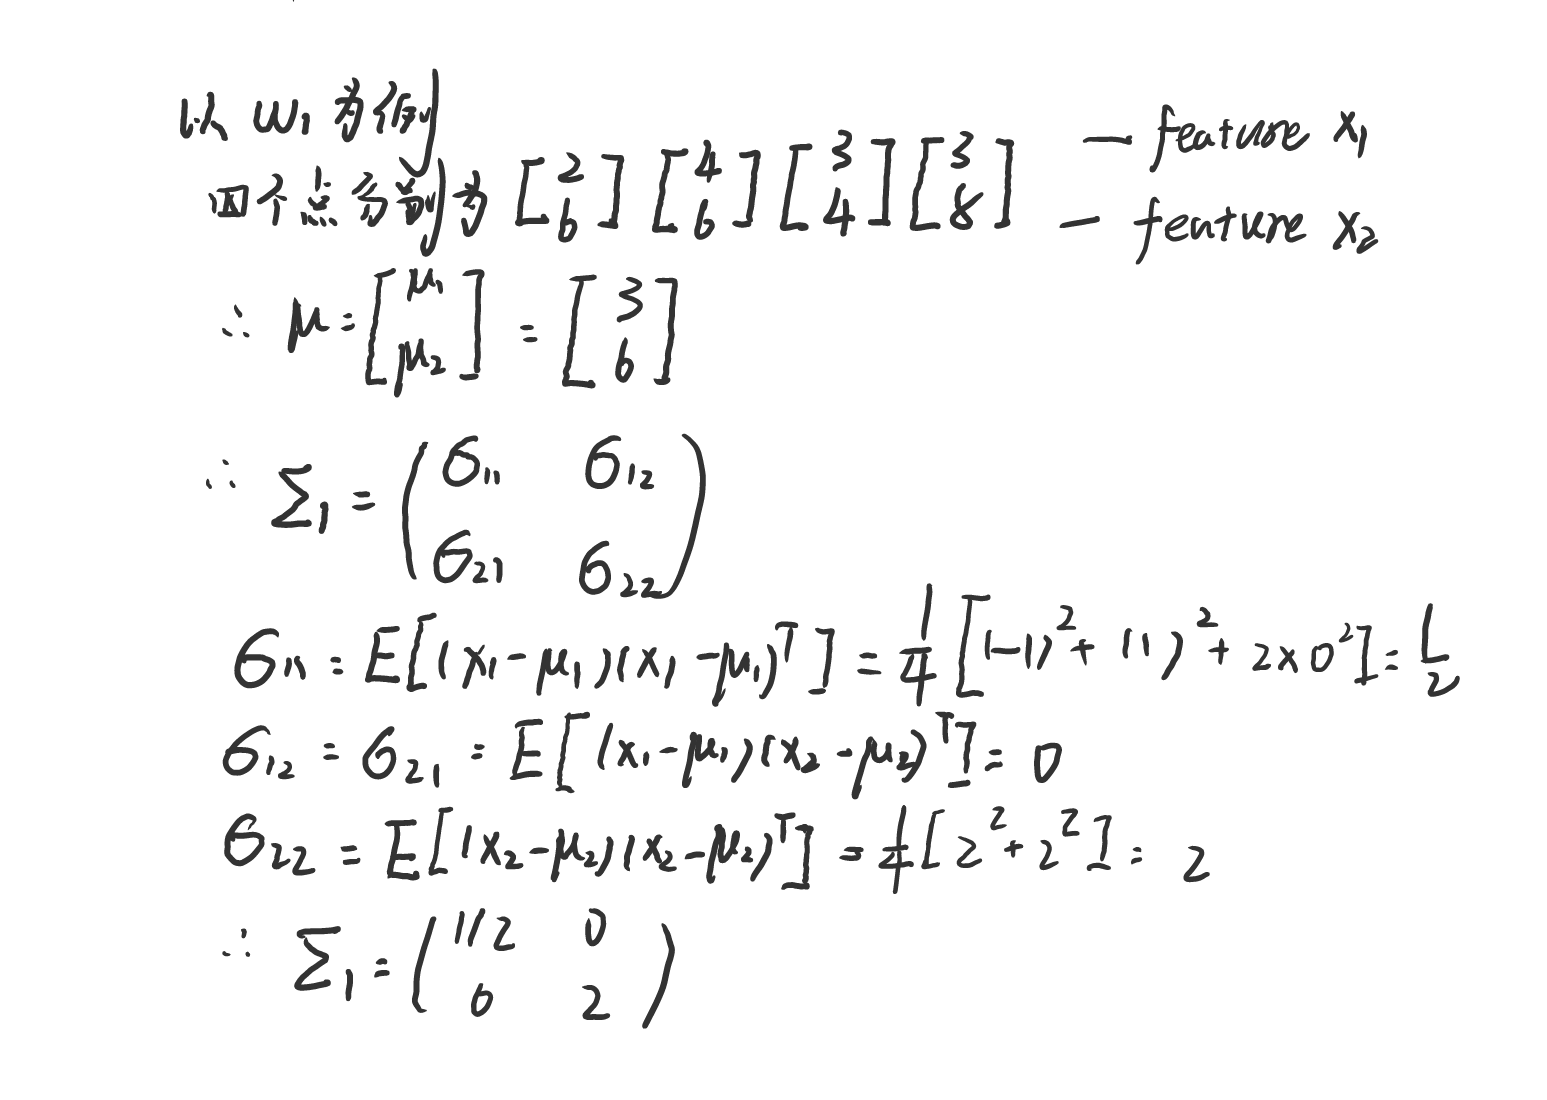 以 ω₁ 为例
四个点分别为 [2 6] [4 6] [3 4] [3 8] — feature x₁ — feature x₂
∴ μ = [μ₁ μ₂] = [3 6]
∴ Σ₁ = (σ₁₁ σ₁₂ σ₂₁ σ₂₂)
σ₁₁ = E[(x₁-μ₁)(x₁-μ₁)ᵀ] = 1/4 [(-1)² + (1)² + 2×0²] = 1/2
σ₁₂ = σ₂₁ = E[(x₁-μ₁)(x₂-μ₂)ᵀ] = 0
σ₂₂ = E[(x₂-μ₂)(x₂-μ₂)ᵀ] = 1/4 [2² + 2²] = 2
∴ Σ₁ = (1/2 0 0 2)